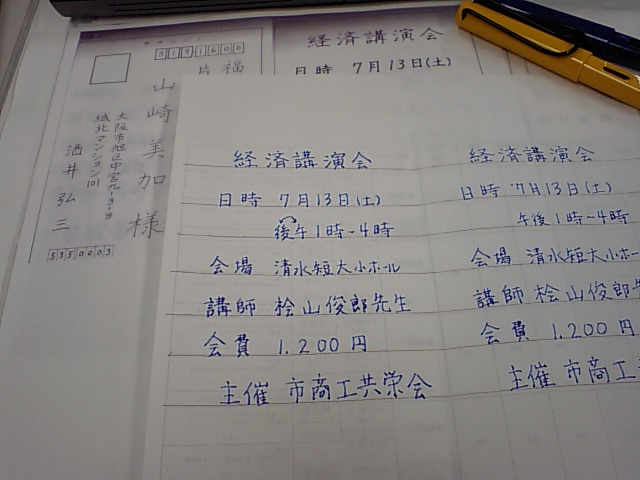 8191600
福
片
山崎美加様
大阪市旭区中宮九-3-9
城北マンション101
酒井弘三
5350003
経済講演会
日時 7月13日(土)
経済講演会
日時 7月13日(土)
後午1時~4時
会場 清水短大小ホール
講師 桧山俊郎先生
会費 1.200円
主催 市商工共栄会
経済講演会
日時 7月13日(土)
午後1時~4時
会場 清水短大小ホー
講師 桧山俊郎
会費 1.200円
主催 市商工